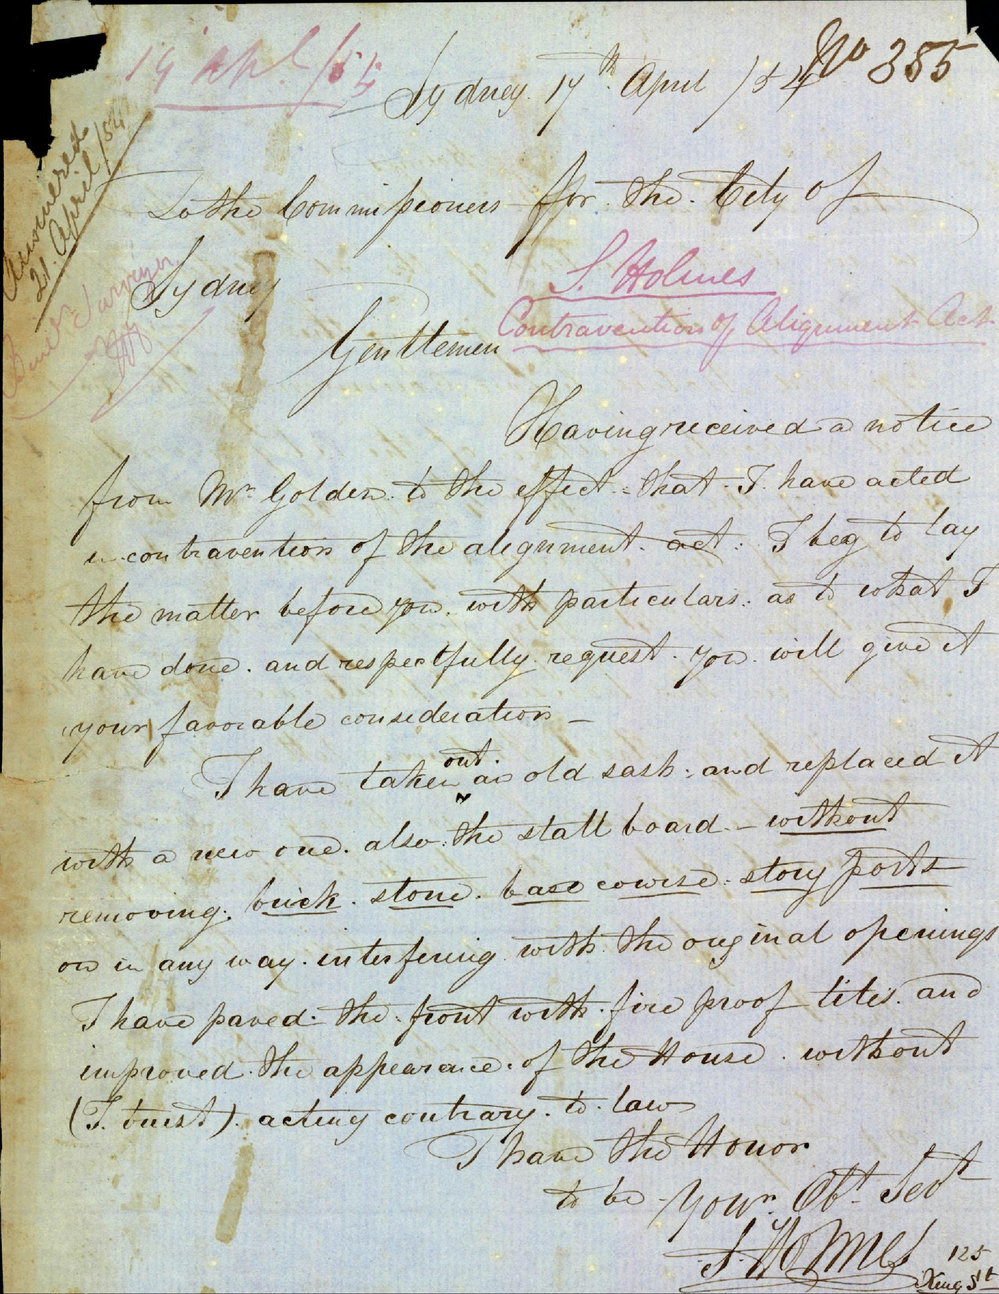 19 Apl /54
No 355
Sydney 17th April /54
Answered
21. April /54
To the Commissioners for the City of
Sydney
S. Holmes
Contravention of Alignment Act
Surveyor
Gentlemen
Having received a notice
from Mr Golden to the effect that I have acted
in contravention of the alignment act. I beg to lay
the matter before you with particulars as to what I
have done. and respectfully request you will give it
your favorable consideration –
I have taken out an old sash and replaced it
with a new one. also the stall board – without
removing. brick. stone. base course. story posts
or in any way. interfering with the original openings
I have paved the front with fire proof tiles and
improved the appearance of the House without
(I trust) acting contrary to law
I have the Honor
to be Your Obt Servt
S. Holmes
125
King St